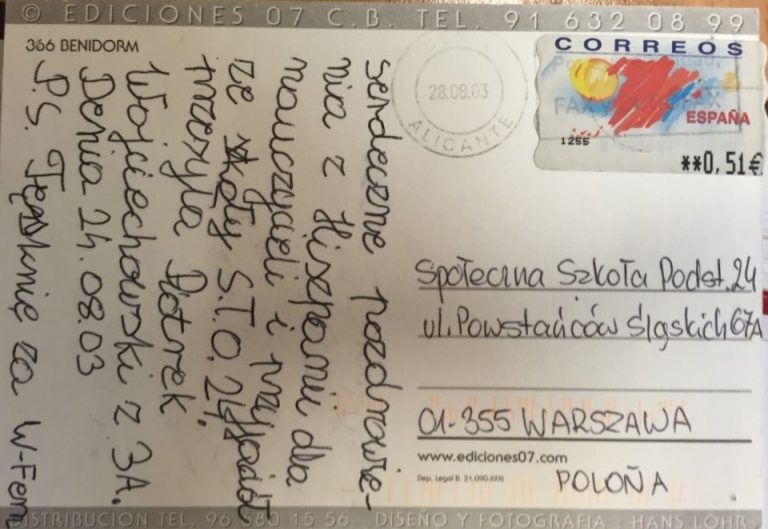 © EDICIONES 07 C.B. TEL. 91 632 08 99
366 BENIDORM
serdeczne pozdrowie-
nia z Hiszpanii dla
nauczycieli i przyjaciół
ze szkoły S.T.O. 24
przesyła Piotrek
Wojciechowski z 3A.
Denia 24.08.03
P.S. Tęsknię za W-Fem
28.08.03
ALICANTE
CORREOS
ESPAÑA
1255
**0,51€
Społeczna Szkoła Podst. 24
ul. Powstańców Śląskich 67A
01-355 WARSZAWA
www.ediciones07.com
Dep. Legal B. 21.090-XXIII
POLOÑA
DISTRIBUCION TEL. 96 680 15 56 . DISEÑO Y FOTOGRAFIA . HANS LÖHR